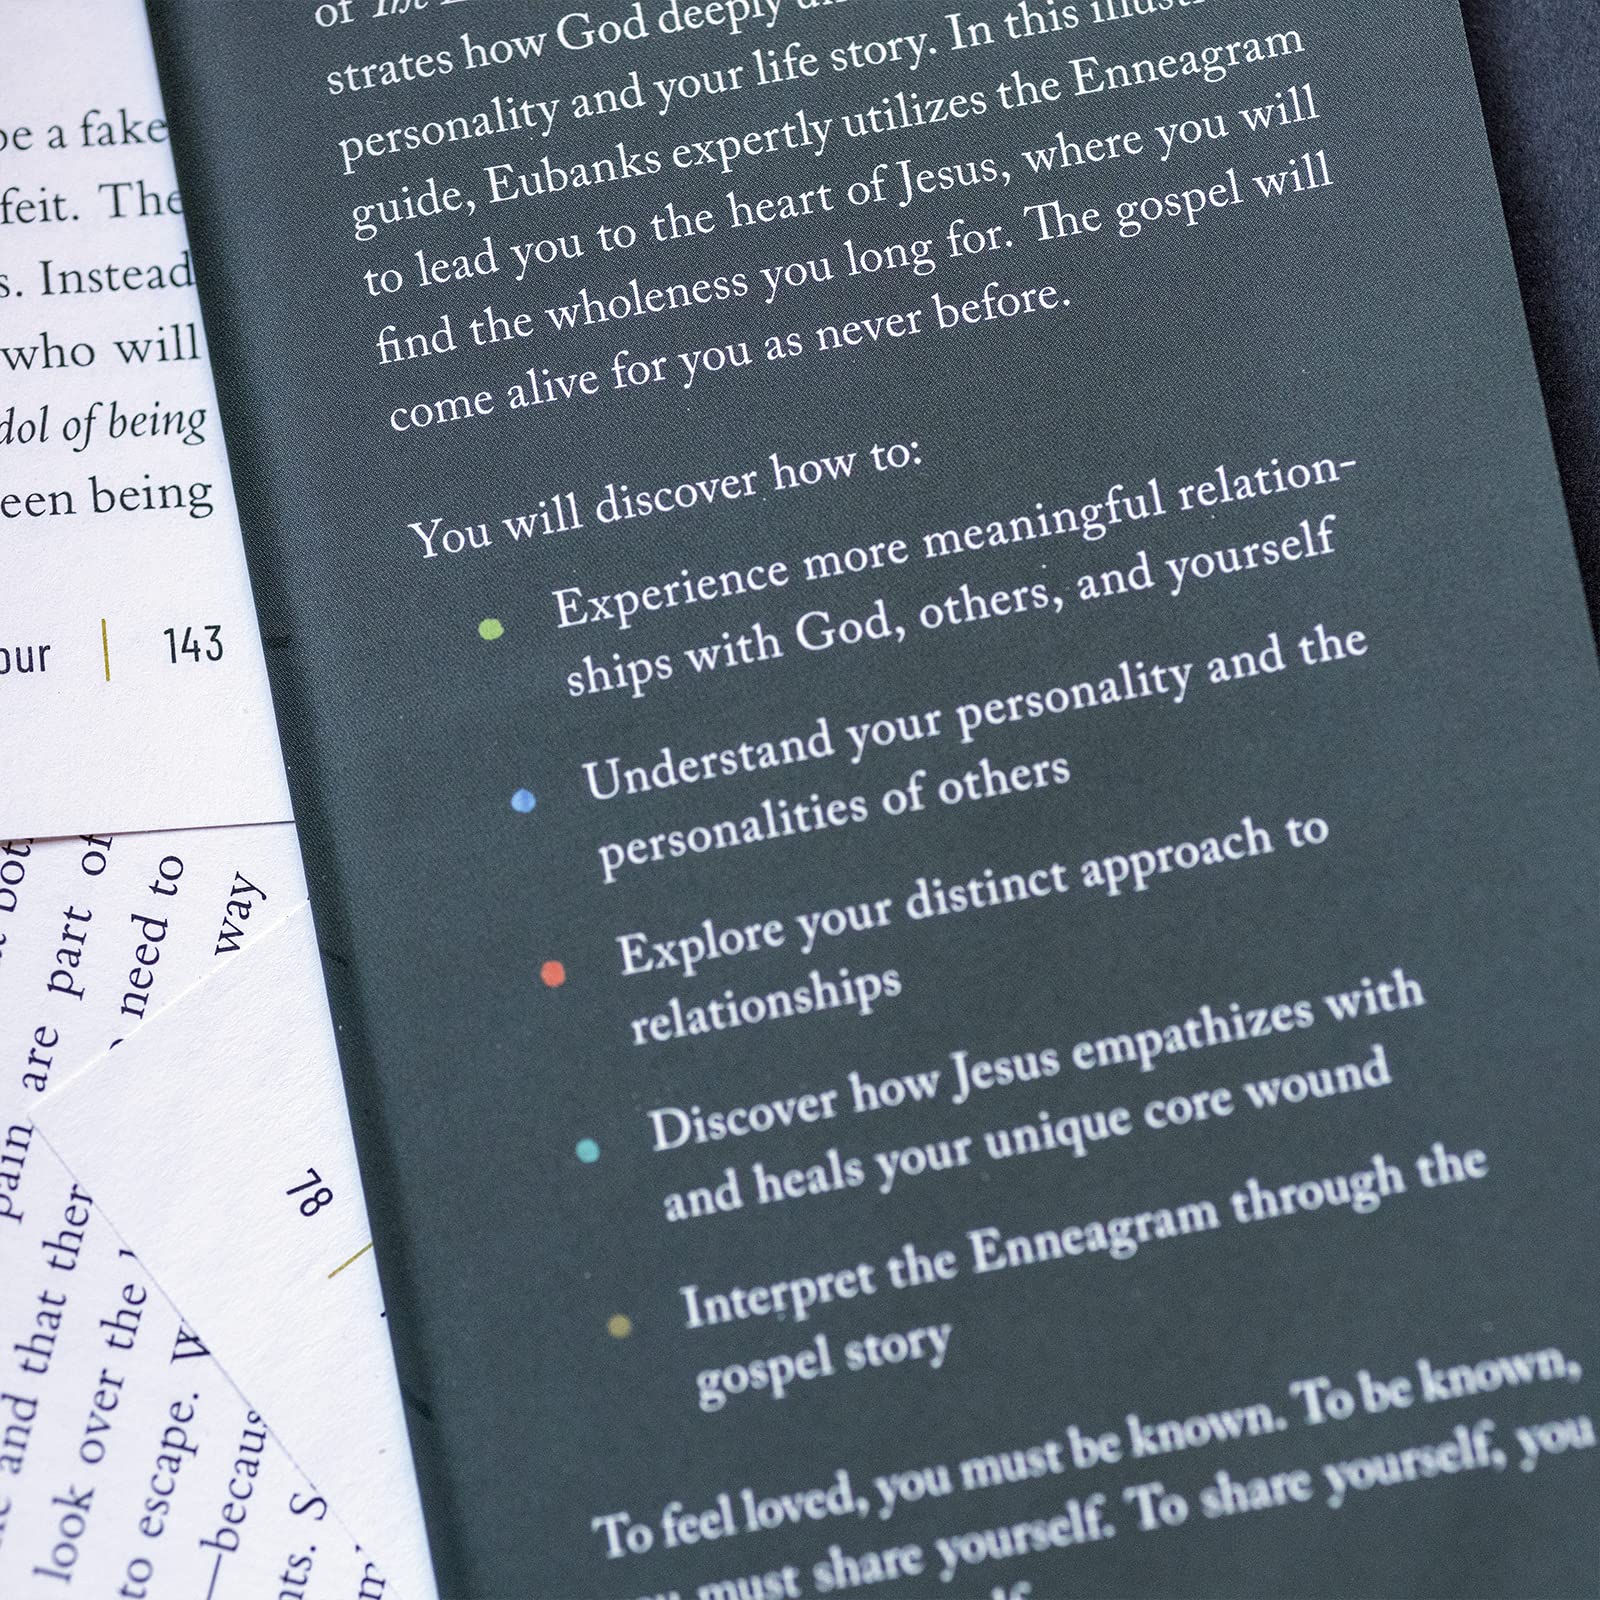 of
strates how God deeply
personality and your life story. In this
guide, Eubanks expertly utilizes the Enneagram
to lead you to the heart of Jesus, where you will
find the wholeness you long for. The gospel will
come alive for you as never before.
You will discover how to:
Experience more meaningful relation-
ships with God, others, and yourself
Understand your personality and the
personalities of others
Explore your distinct approach to
relationships
Discover how Jesus empathizes with
and heals your unique core wound
Interpret the Enneagram through the
gospel story
To feel loved, you must be known. To be known,
must share yourself. To share yourself, you
be a fake
feit. The
s. Instead
who will
dol of being
een being
our | 143
part of
need to
way
pain are
and that ther
look over the
to escape. W
—becaus
nts. S
78